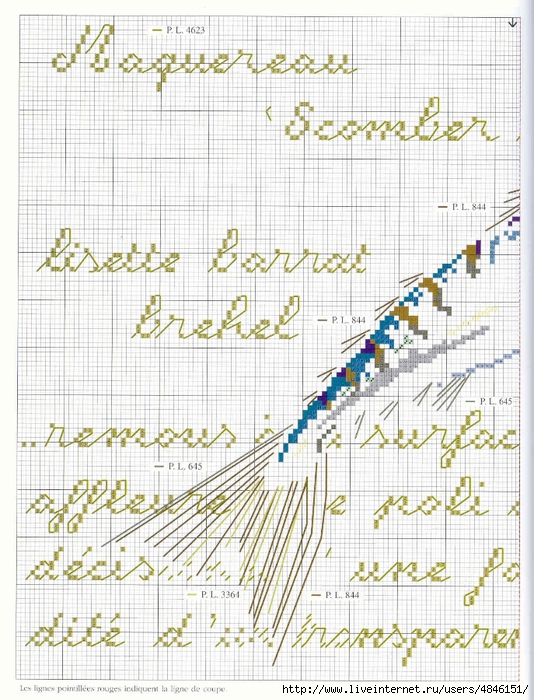 P. L. 4623
Maquereau
'Scomber
P. L. 844
lisette barrat
P. L. 844
brehel
P. L. 645
..remous
surfac
P. L. 645
affleure
poli
décis
une
P. L. 3364
P. L. 844
dité d'
transparen
Les lignes pointillées rouges indiquent la ligne de coupe.
http://www.liveinternet.ru/users/4846151/